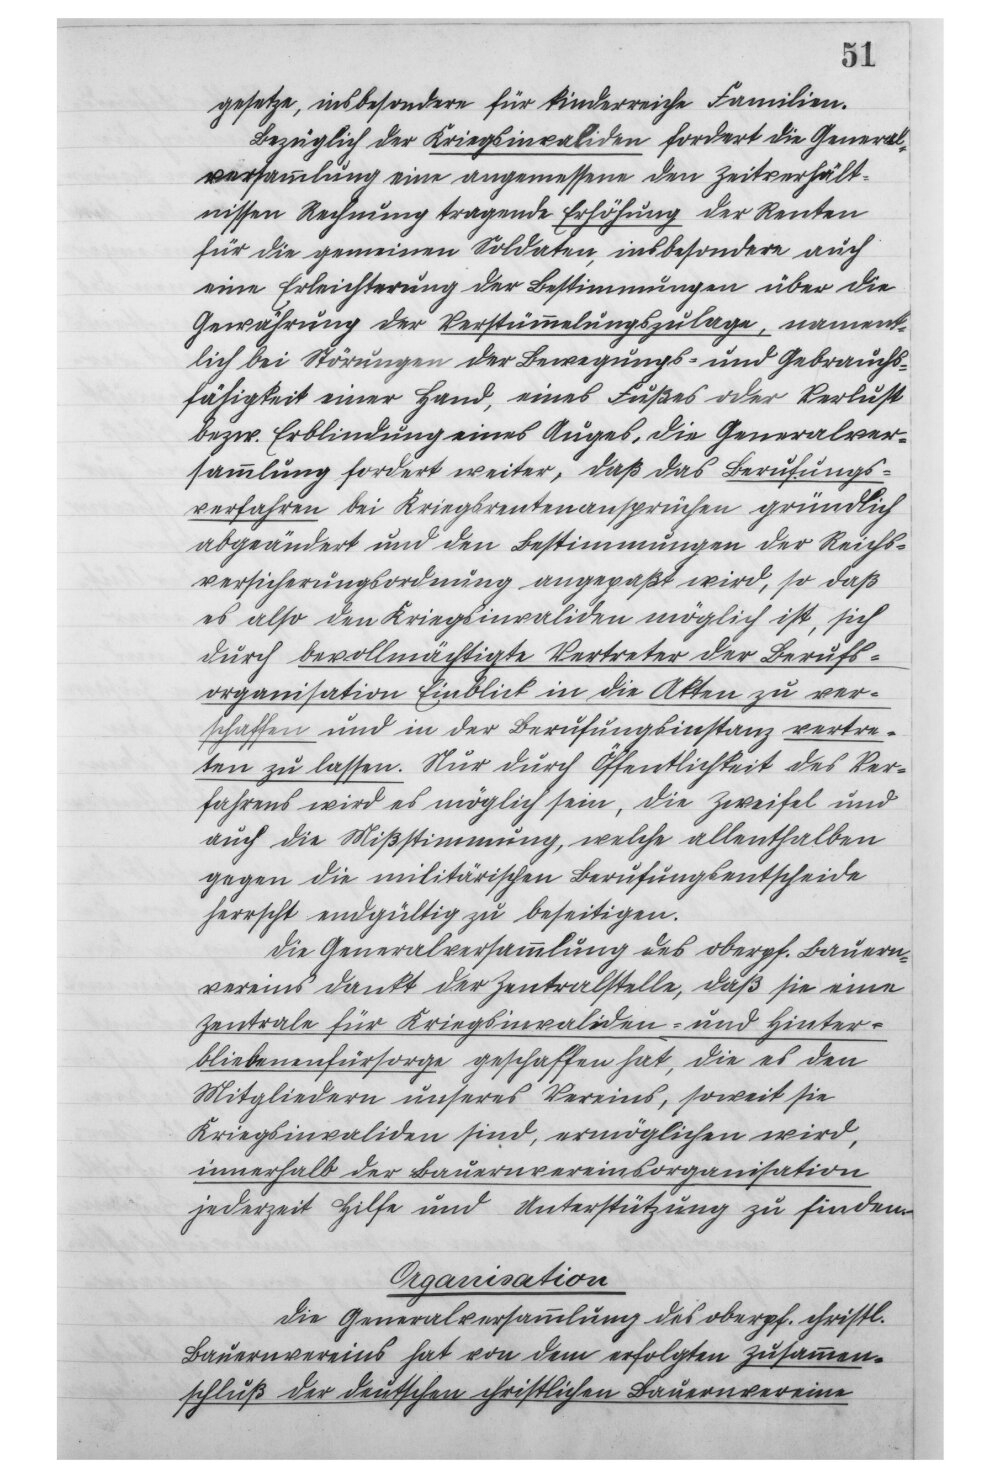 51
gesetze, insbesondere für kinderreiche Familien.
Bezüglich der Kriegsinvaliden fordert die General-
versam̅lung eine angemessene den Zeitverhält-
nissen Rechnung tragende Erhöhung der Renten
für die gemeinen Soldaten, insbesondere auch
eine Erleichterung der Bestimmungen über die
Gewährung der Verstüm̅elungszulage, nament-
lich bei Störungen der Bewegungs- und Gebrauchs-
fähigkeit einer Hand, eines Fußes oder Verlust
bezw. Erblindung eines Auges. Die Generalver-
sam̅lung fordert weiter, daß das Berufungs-
verfahren bei Kriegsrentenansprüchen gründlich
abgeändert und den Bestimmungen der Reichs-
versicherungsordnung angepaßt wird, so daß
es also den Kriegsinvaliden möglich ist, sich
durch bevollmächtigte Vertreter der Berufs-
organisation Einblick in die Akten zu ver-
schaffen und in der Berufungsinstanz vertre-
ten zu lassen. Nur durch Öffentlichkeit des Ver-
fahrens wird es möglich sein, die Zweifel und
auch die Mißstimmung, welche allenthalben
gegen die militärischen Berufungsentscheide
herrscht endgültig zu beseitigen.
Die Generalversam̅lung des oberpf. Bauern-
vereins dankt der Zentralstelle, daß sie eine
Zentrale für Kriegsinvaliden- und Hinter-
bliebenenfürsorge geschaffen hat, die es den
Mitgliedern unseres Vereins, soweit sie
Kriegsinvaliden sind, ermöglichen wird,
innerhalb der Bauernvereinsorganisation
jederzeit Hilfe und Unterstützung zu finden.
Organisation
Die Generalversam̅lung des oberpf. christl.
Bauernvereins hat von dem erfolgten Zusam̅en-
schluß der deutschen christlichen Bauernvereine